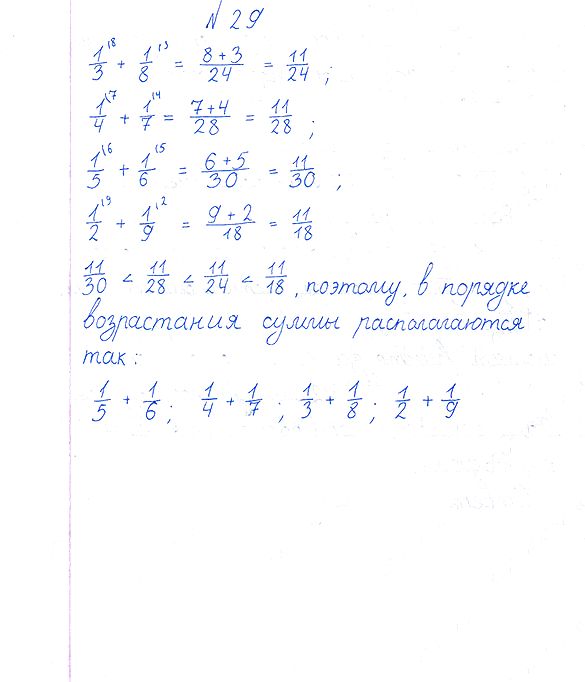 № 29
1/3 \8 + 1/8 \3 = (8+3)/24 = 11/24 ;
1/4 \7 + 1/7 \4 = (7+4)/28 = 11/28 ;
1/5 \6 + 1/6 \5 = (6+5)/30 = 11/30 ;
1/2 \9 + 1/9 \2 = (9+2)/18 = 11/18
11/30 < 11/28 < 11/24 < 11/18 , поэтому, в порядке
возрастания суммы располагаются
так:
1/5 + 1/6 ; 1/4 + 1/7 ; 1/3 + 1/8 ; 1/2 + 1/9